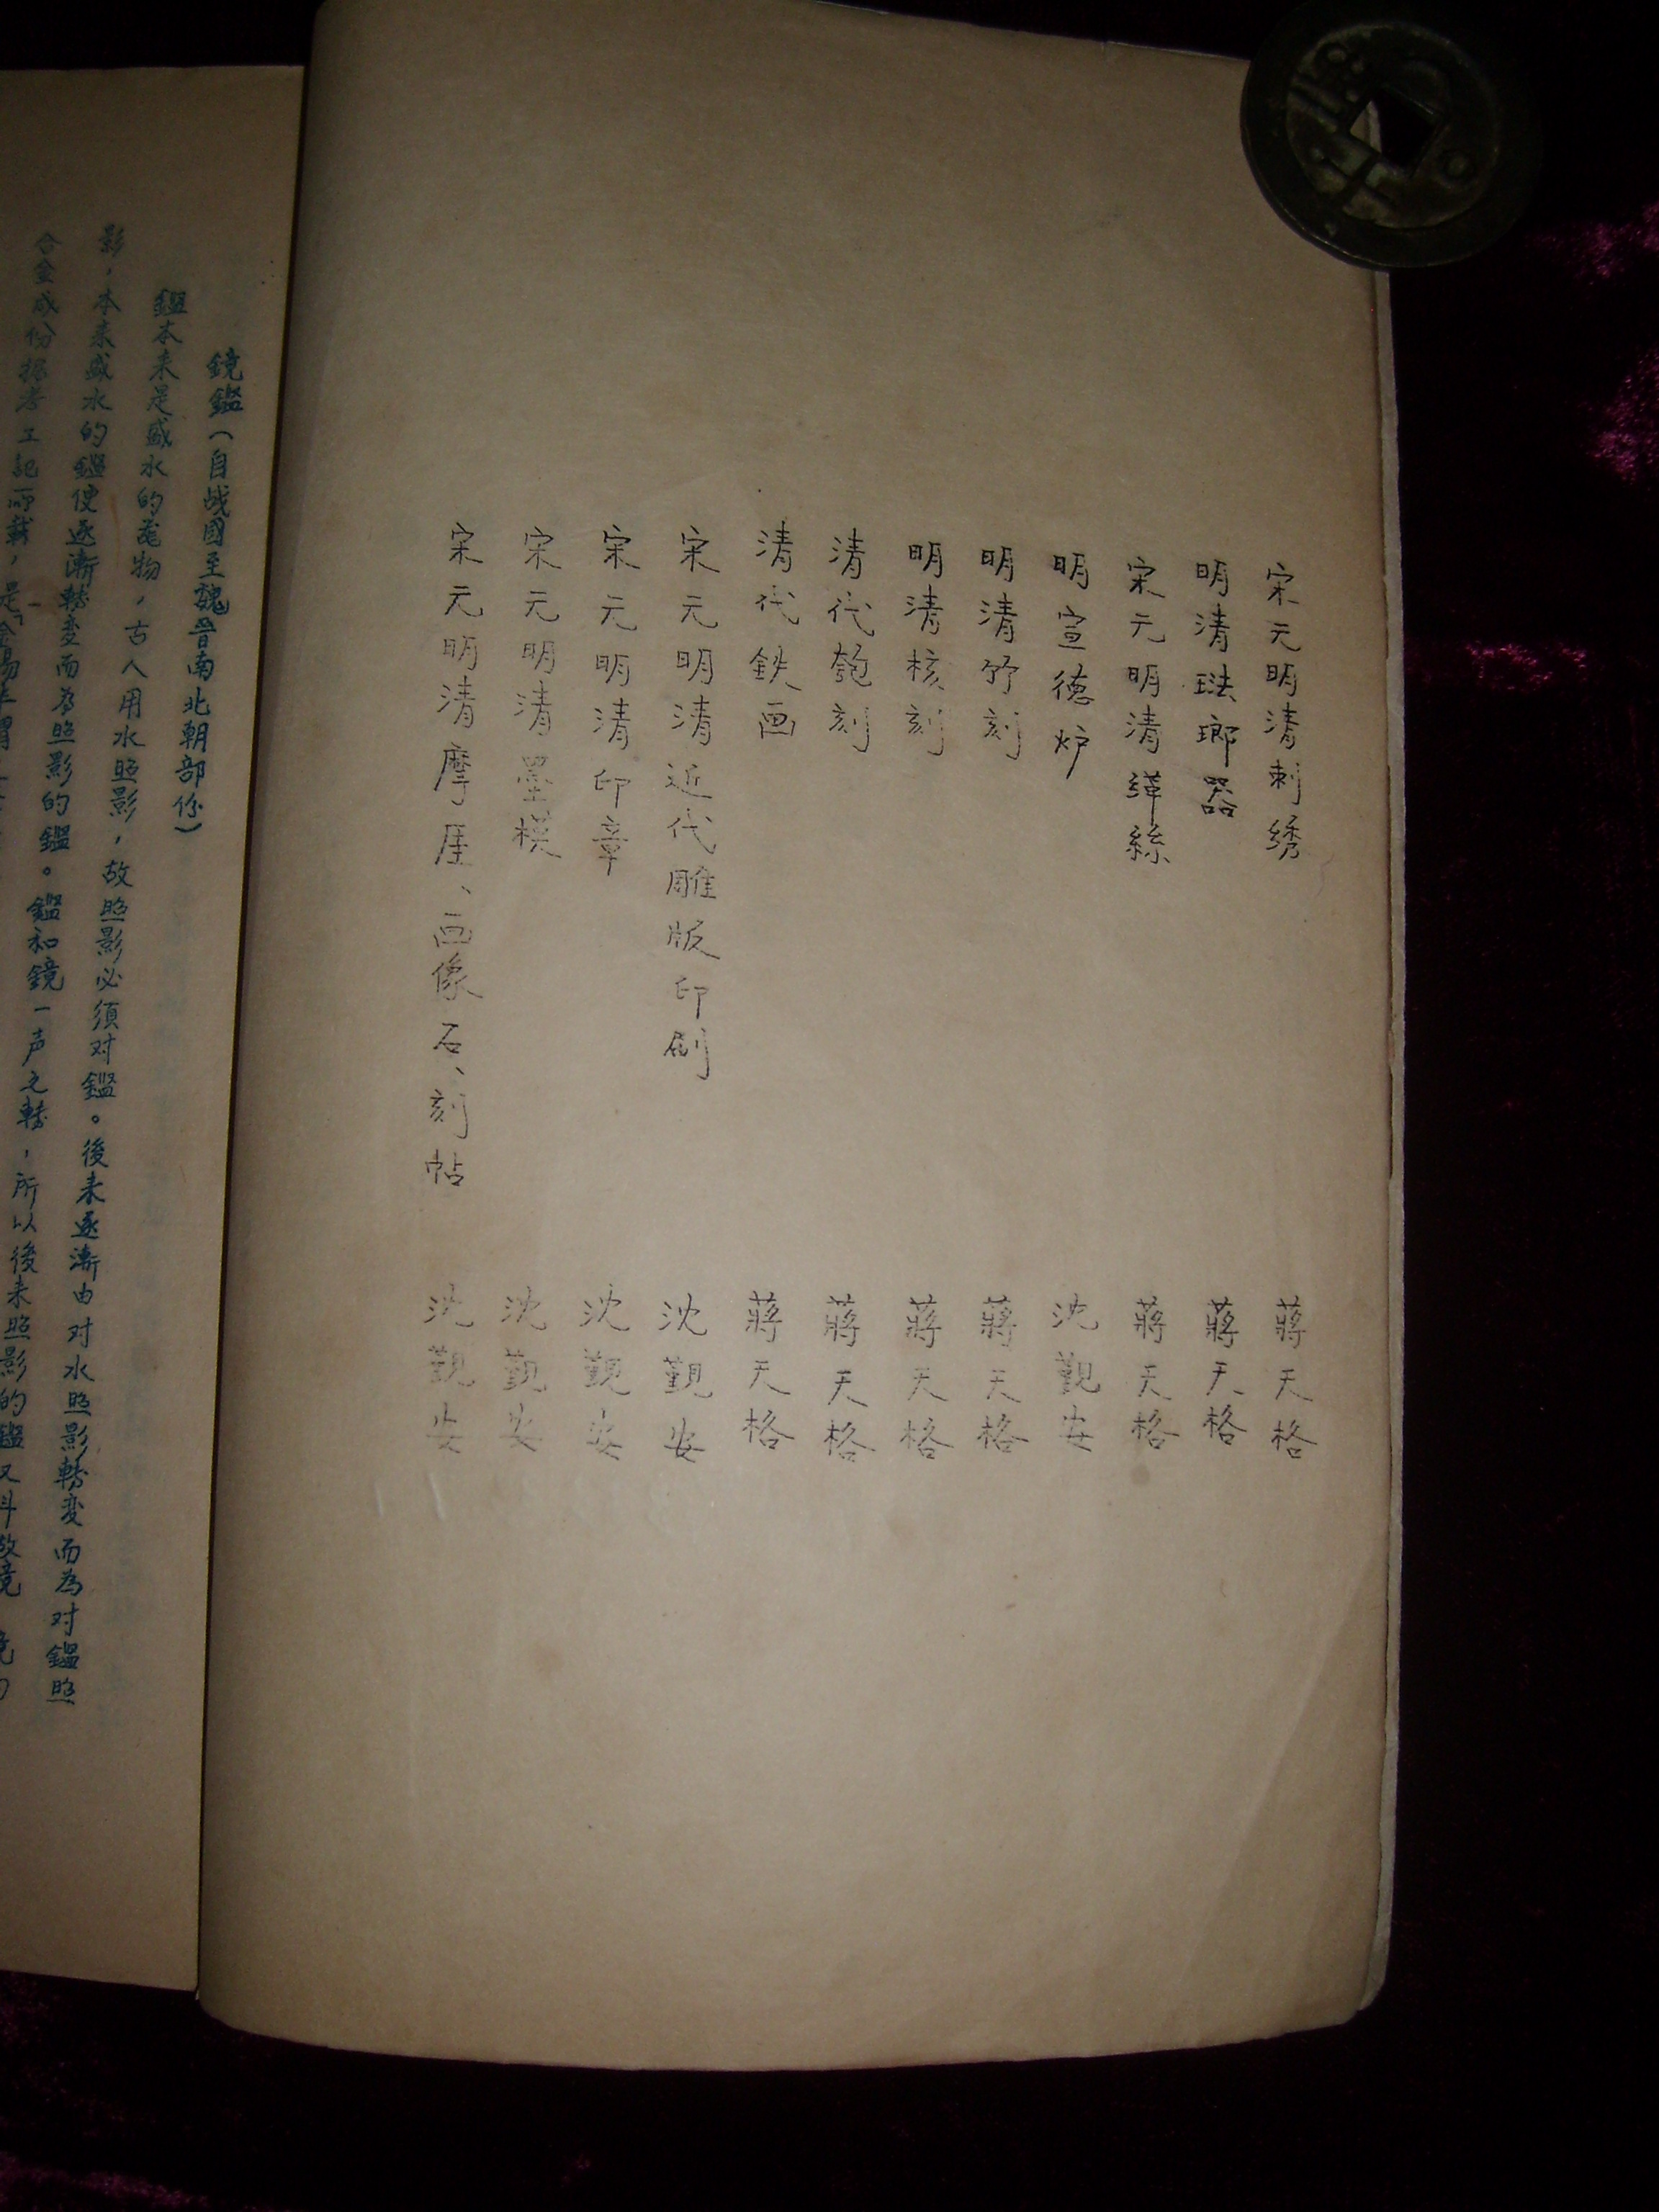 宋元明清刺绣 蔣天格
明清琺瑯器 蔣天格
宋元明清緙絲 蔣天格
明宣德炉 沈觐安
明清竹刻 蔣天格
明清核刻 蔣天格
清代匏刻 蔣天格
清代鉄画 蔣天格
宋元明清近代雕版印刷 沈觐安
宋元明清印章 沈觐安
宋元明清墨模 沈觐安
宋元明清摩厓、画像石、刻帖 沈觐安
鏡鑑（自战國至魏晋南北朝部份）
鑑本来是盛水的器物，古人用水照影，故照影必須对鑑。後来逐漸由对水照影轉変而為对鑑照
影，本来盛水的鑑使逐漸轉変而為照影的鑑。鑑和鏡一声之轉，所以後来照影的鑑又叫做鏡
合金成份据考工記所載，是「金錫半